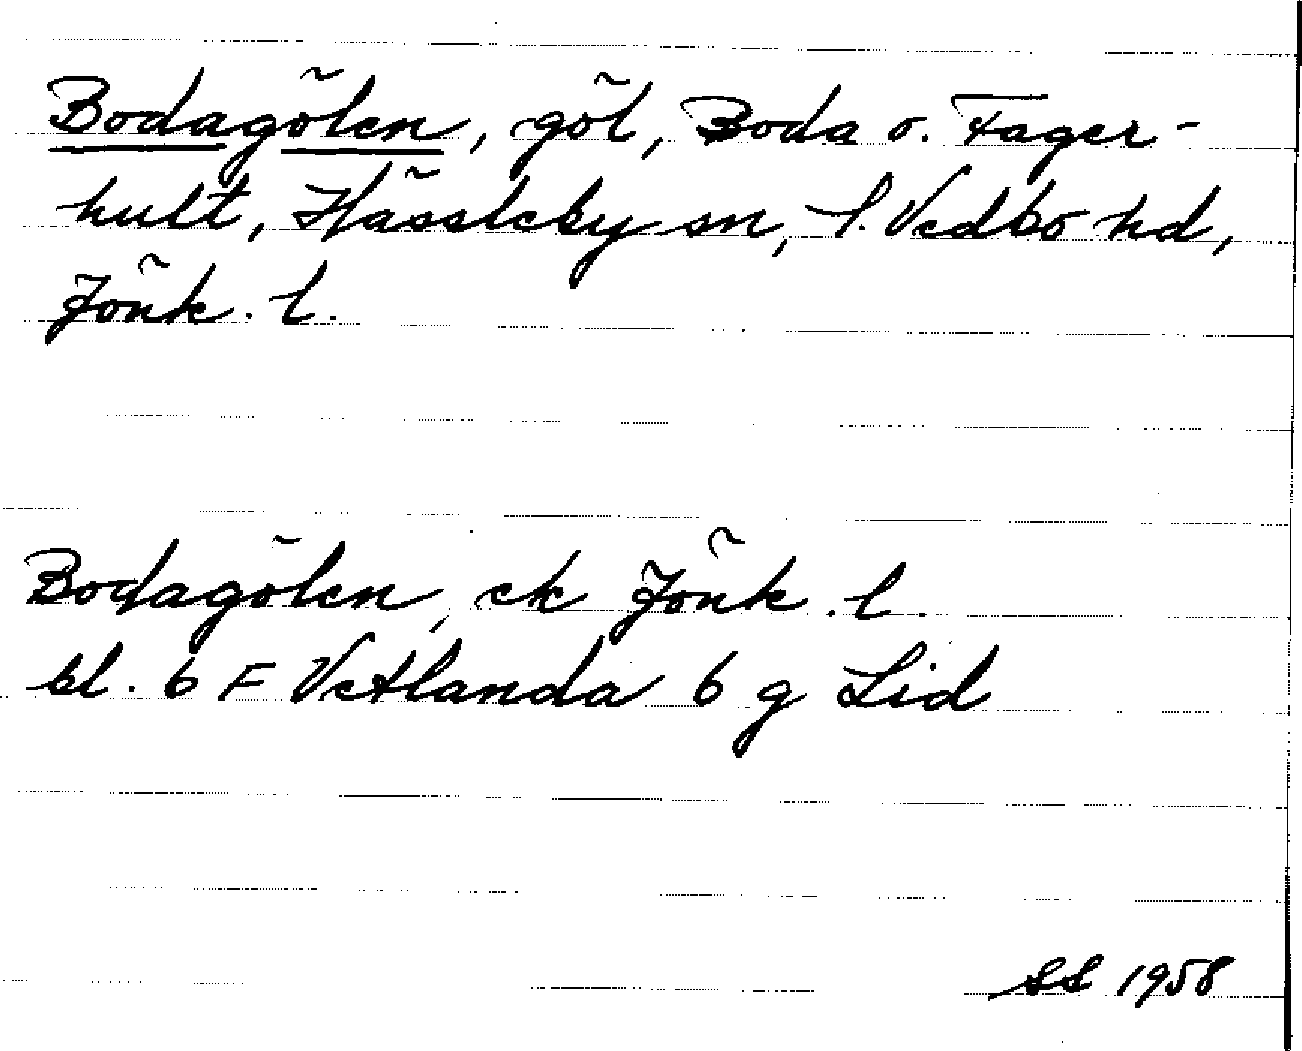 Bodagölen, göl, Boda o. Fager-
hult, Hässleby sn, S. Vedbo hd,
Jönk. l.
Bodagölen, ek Jönk. l.
bl. 6 F Vetlanda 6 g Lid
SS 1958